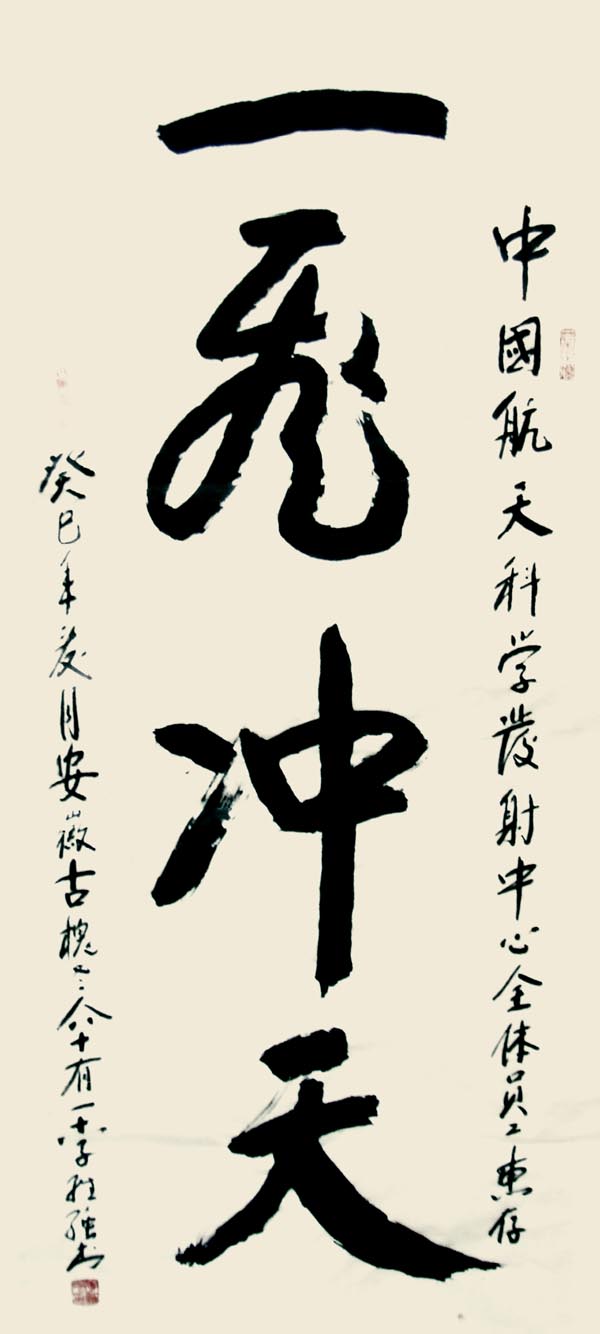 中國航天科学發射中心全体員工惠存
一飛冲天
癸巳年月安徽古槐八十有一李強书